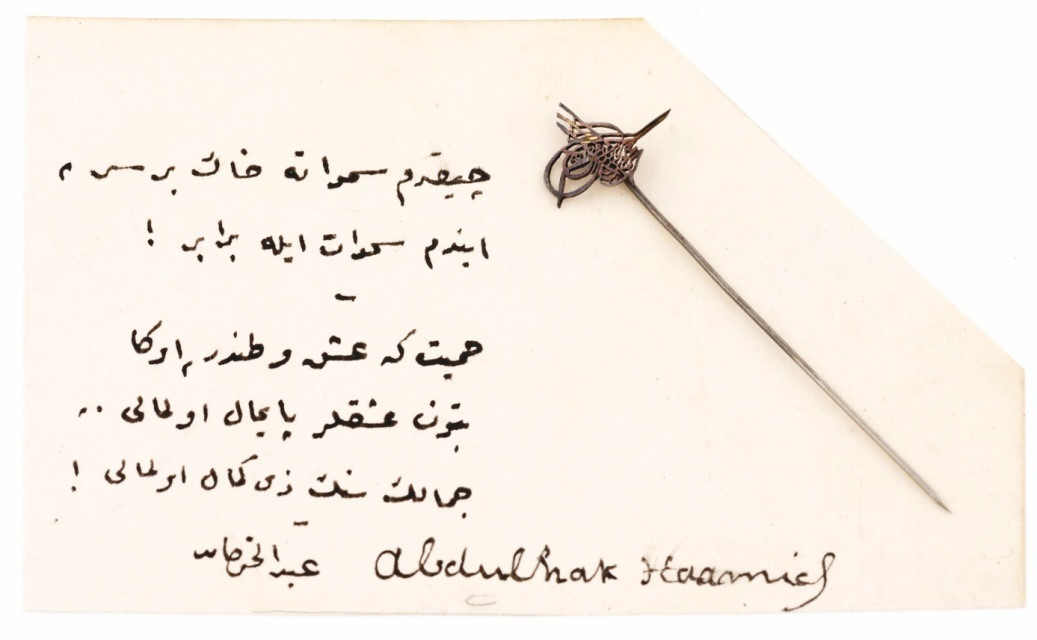 چیقدم سمواته خاك بر سر ،
ایندم سموات ایله برابر !
حمیت كه عشق وطندر ، اوكا
بتون عشقلر پایمال اولمالی ..
جمالك سنك ذی كمال اولمالی !
عبدالحق حامد Abdulhak Haamid